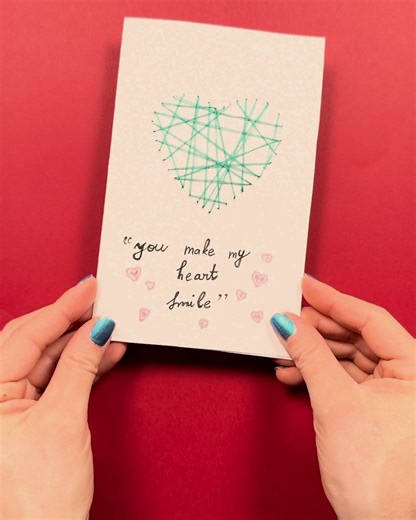 "you make my
heart
smile"